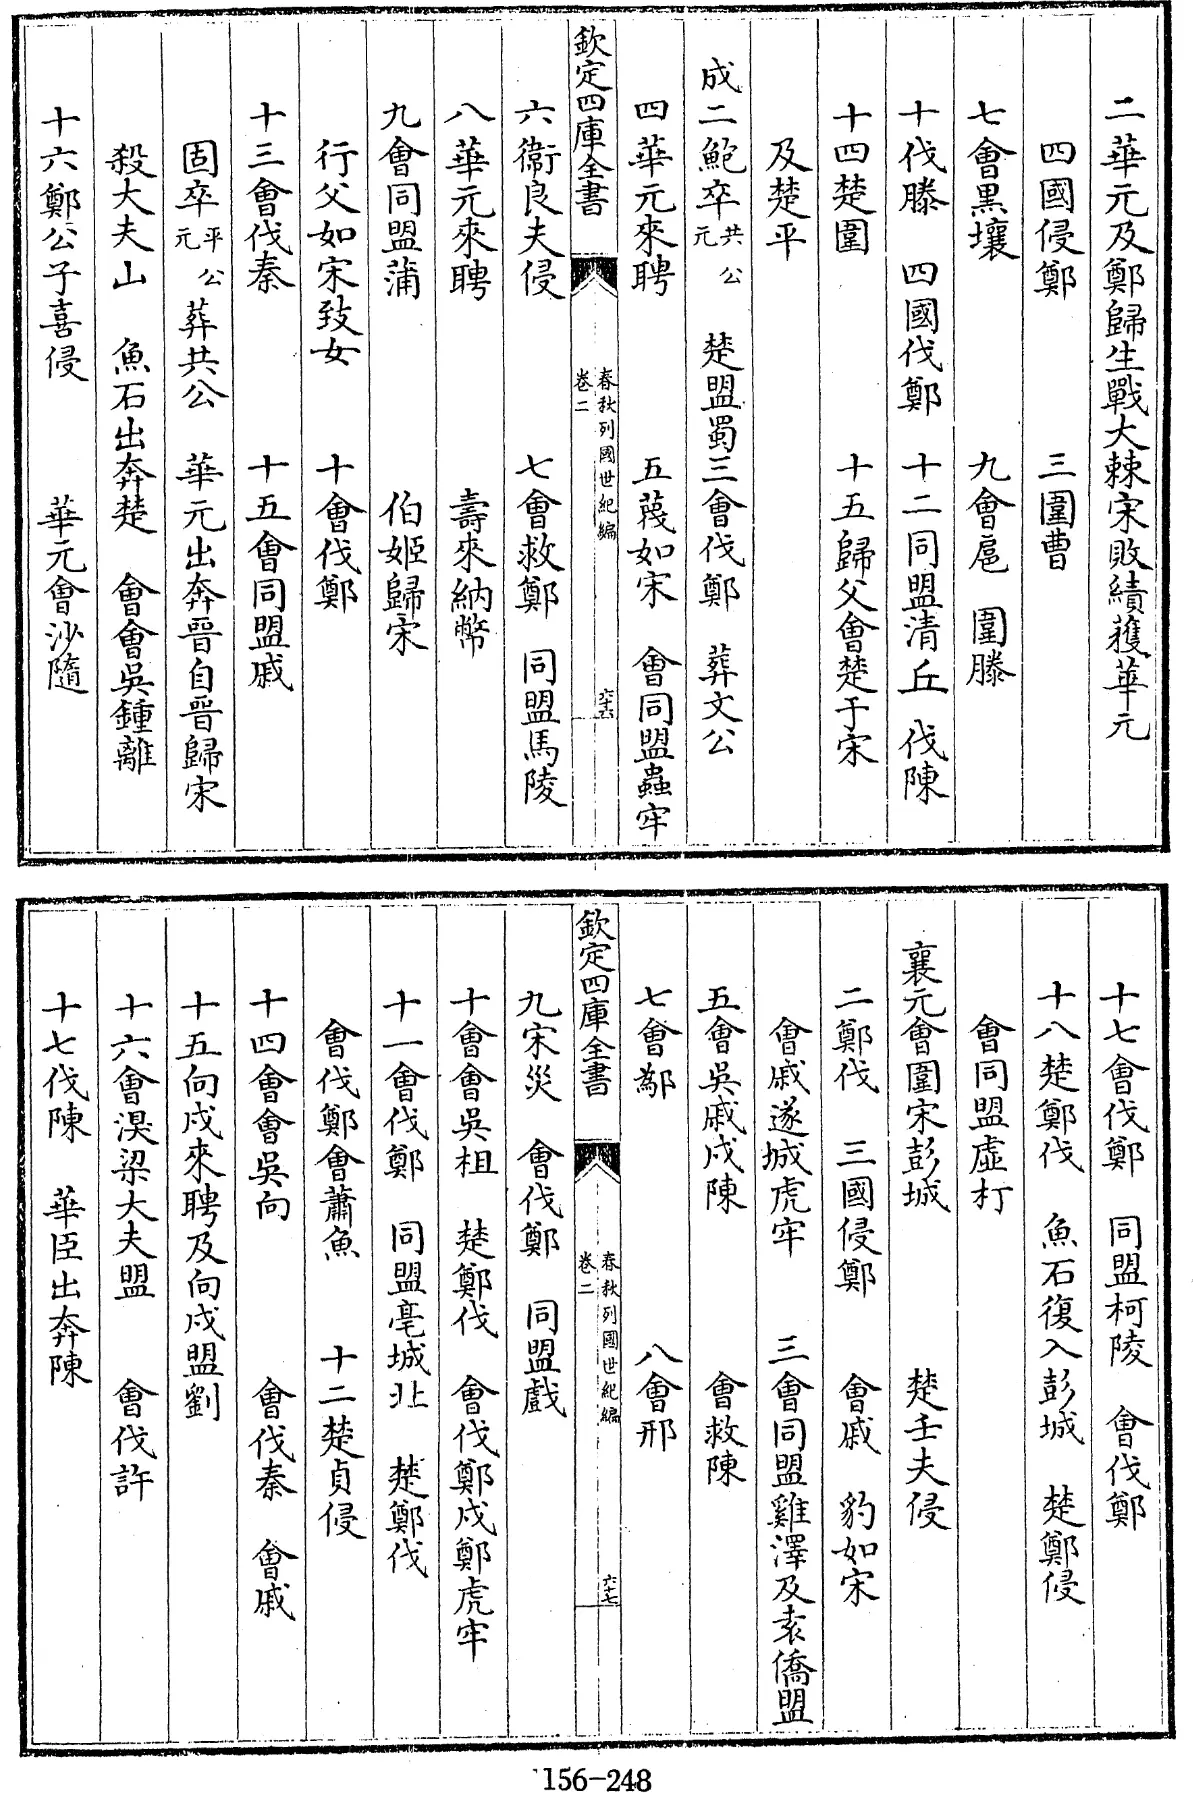 二華元及鄭歸生戰大棘宋敗績獲華元
四國侵鄭　三圍曹
七會黑壤　九會扈　圍滕
十伐滕　四國伐鄭　十二同盟清丘　伐陳
十四楚圍　十五歸父會楚于宋
及楚平
成二鮑卒共公元　楚盟蜀三會伐鄭　葬文公
四華元來聘　五蔑如宋　會同盟蟲牢
欽定四庫全書　春秋列國世紀編卷二　六十六
六衞良夫侵　七會救鄭　同盟馬陵
八華元來聘　壽來納幣
九會同盟蒲　伯姬歸宋
行父如宋致女　十會伐鄭
十三會伐秦　十五會同盟戚
固卒平公元　葬共公　華元出奔晉自晉歸宋
殺大夫山　魚石出奔楚　會會吳鍾離
十六鄭公子喜侵　華元會沙隨
十七會伐鄭　同盟柯陵　會伐鄭
十八楚鄭伐　魚石復入彭城　楚鄭侵
會同盟虛朾
襄元會圍宋彭城　楚壬夫侵
二鄭伐　三國侵鄭　會戚　豹如宋
會戚遂城虎牢　三會同盟雞澤及袁僑盟
五會吳戚戍陳　會救陳
七會鄬　八會邢
欽定四庫全書　春秋列國世紀編卷二　六十七
九宋災　會伐鄭　同盟戲
十會會吳柤　楚鄭伐　會伐鄭戍鄭虎牢
十一會伐鄭　同盟亳城北　楚鄭伐
會伐鄭會蕭魚　十二楚貞侵
十四會會吳向　會伐秦　會戚
十五向戍來聘及向戍盟劉
十六會湨梁大夫盟　會伐許
十七伐陳　華臣出奔陳
156-248